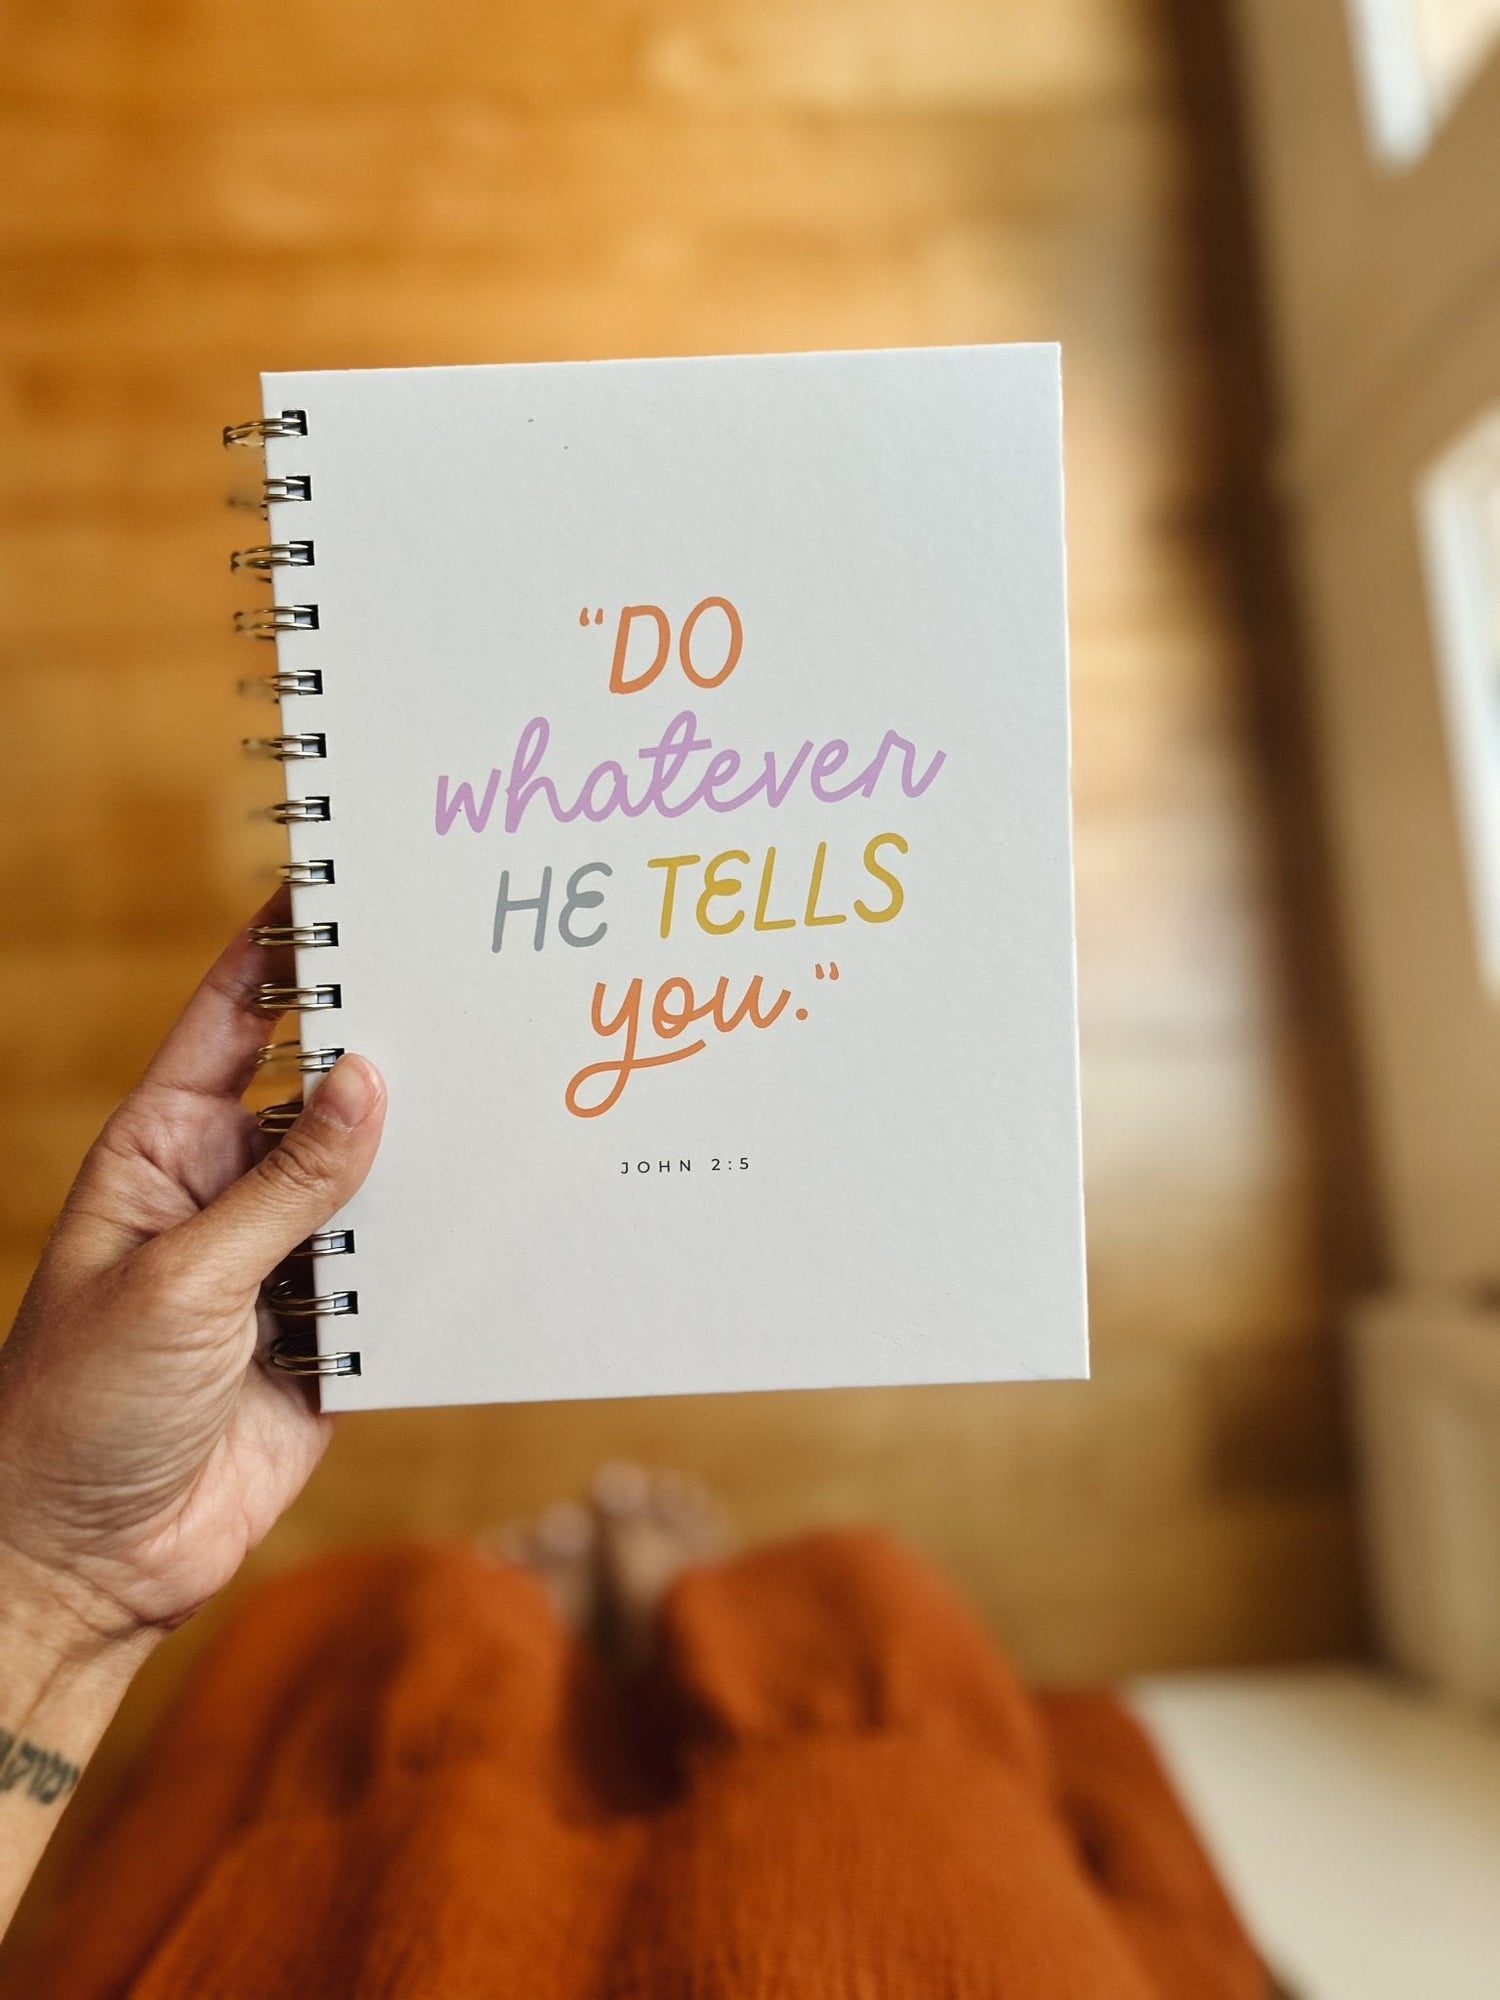 “DO
whatever
HE TELLS
you.“
JOHN 2:5